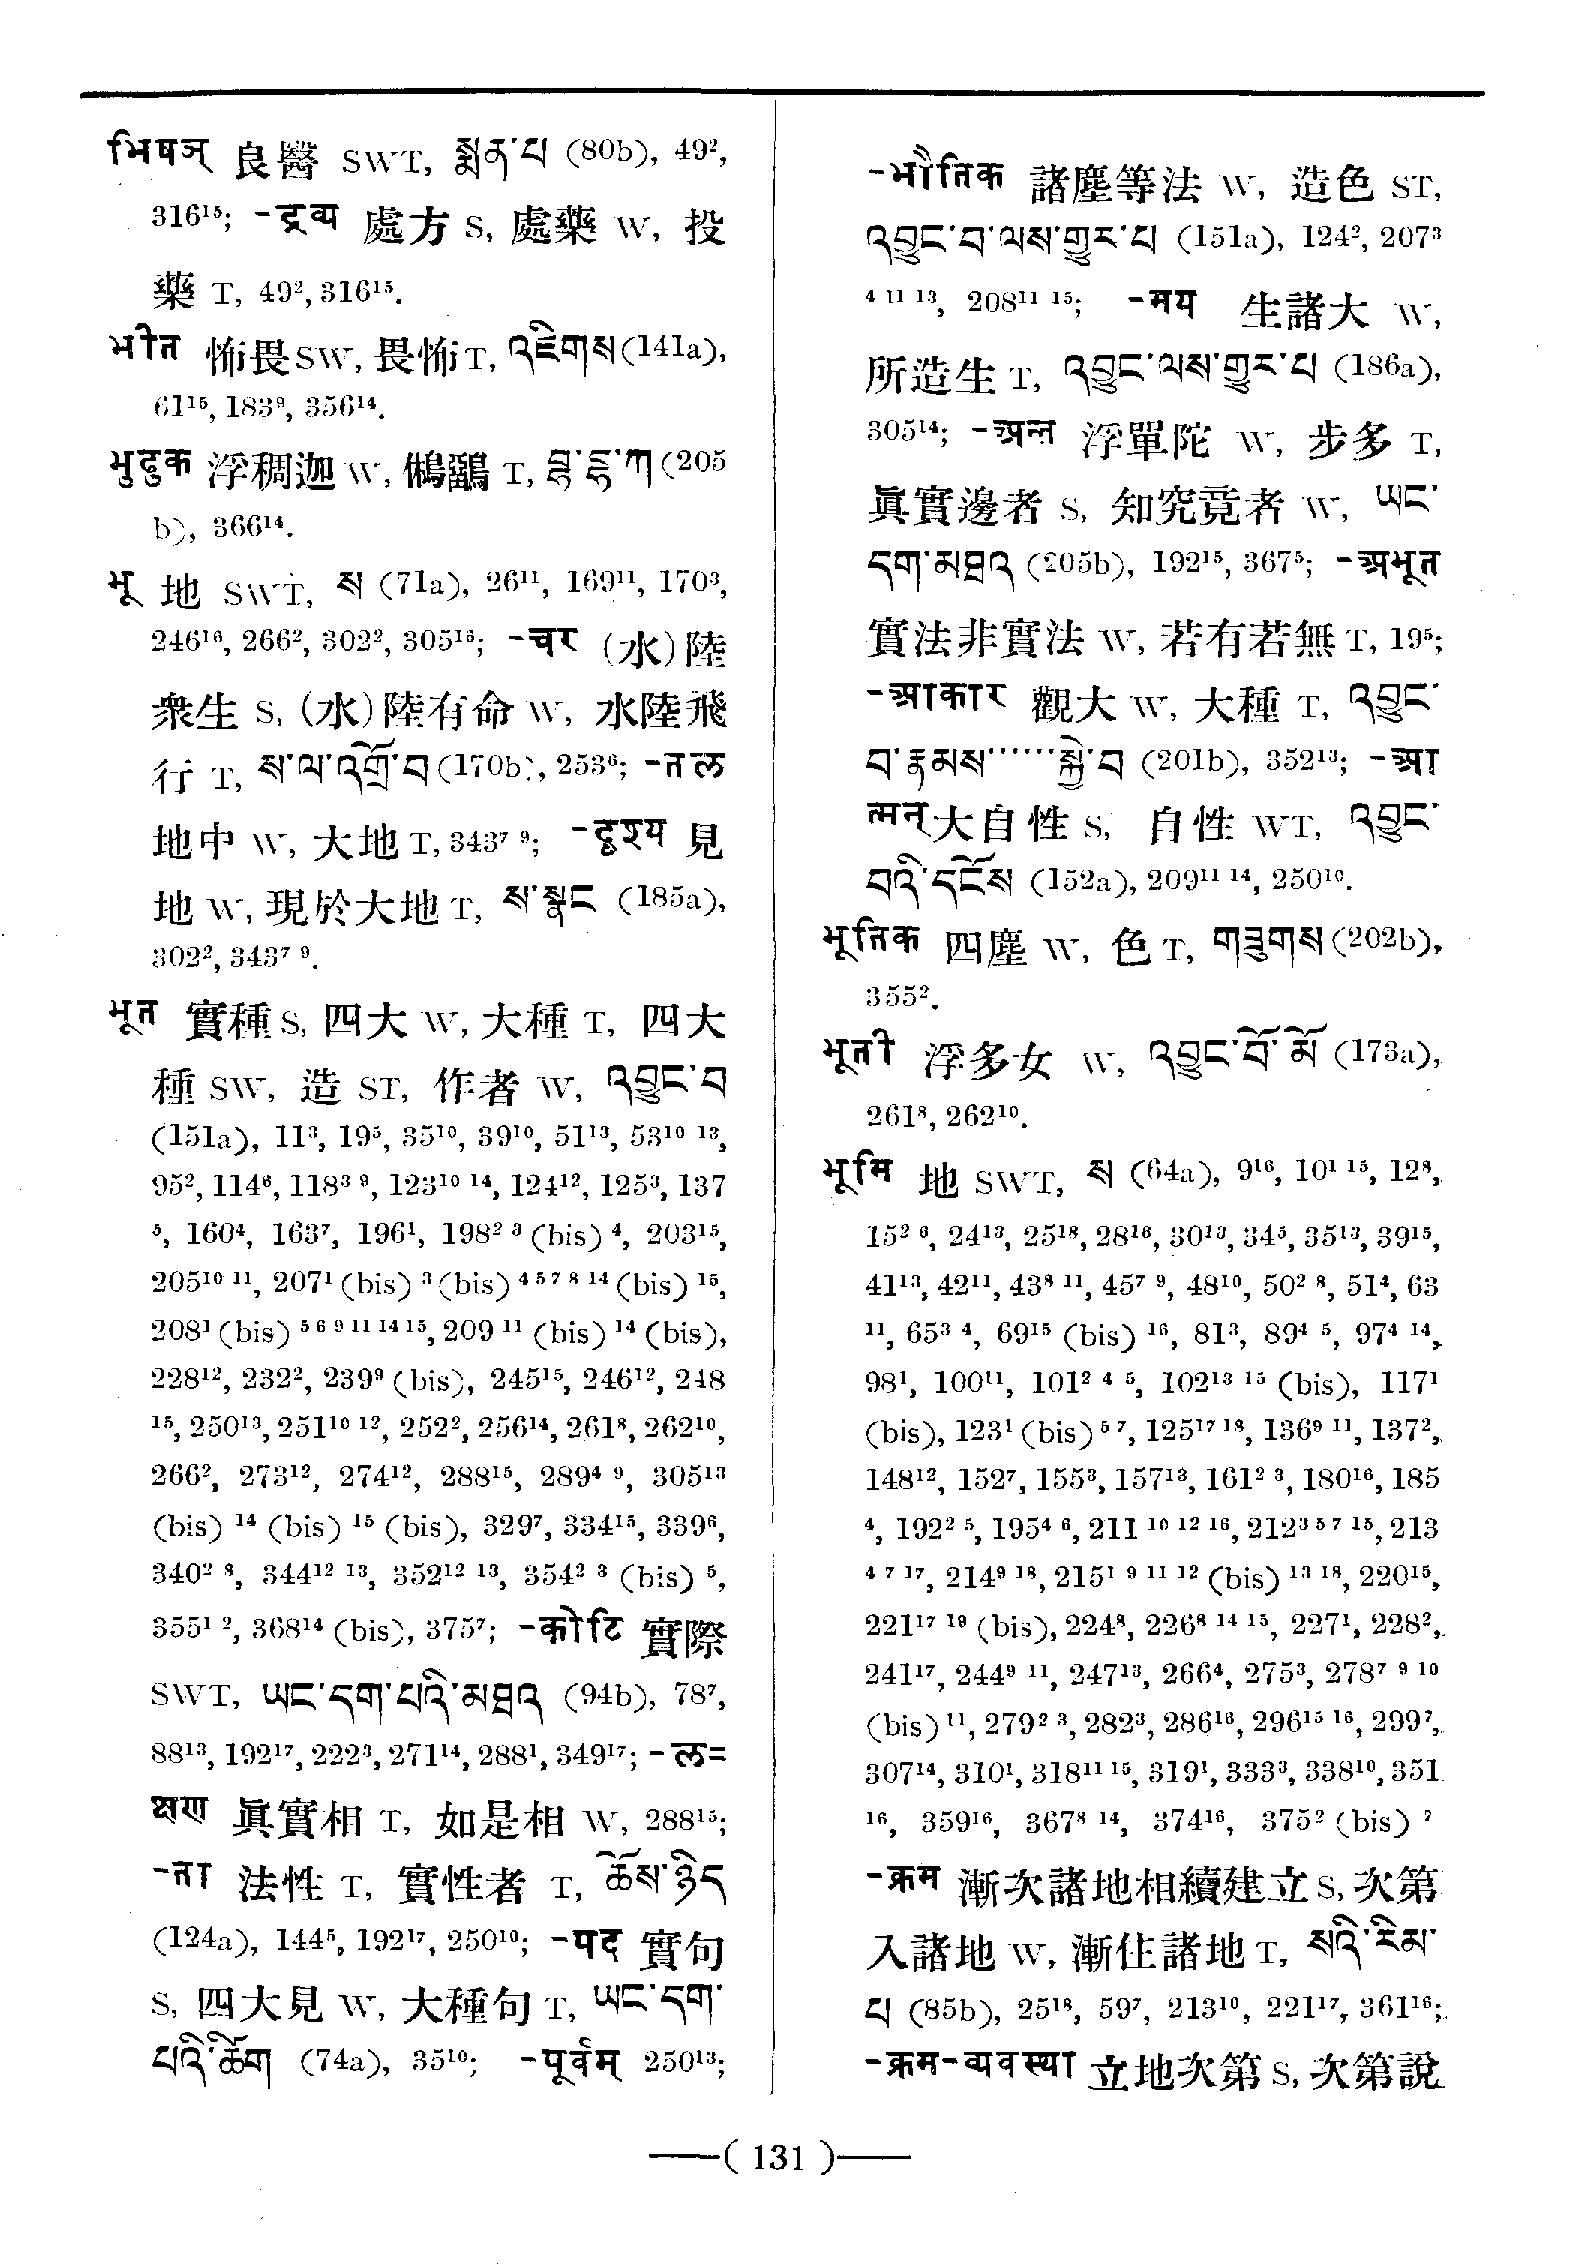 भिषज् 良醫 SWT, སྨན་པ (80b), 49², 
316¹⁵; -द्रव्य 處方 S, 處藥 W, 投
藥 T, 49², 316¹⁵.
भीत 怖畏SW, 畏怖T, འཇིགས(141a),
61¹⁵, 183⁹, 356¹⁴.
भुढुक 浮稠迦 W, 鵂鶹 T, བྷུ་ཌྷུ་ཀ (205
b), 366¹⁴.
भू 地 SWT, ས (71a), 26¹¹, 169¹¹, 170³,
246¹⁶, 266², 302², 305¹⁶; -चर (水)陸
衆生 S, (水)陸有命 W, 水陸飛
行 T, ས་ལ་འགྲོ་བ (170b), 253⁶; -तल
地中 W, 大地 T, 343⁷ ⁹; -दृश्य 見
地 W, 現於大地 T, ས་སྣང (185a),
302², 343⁷ ⁹.
भूत 實種 S, 四大 W, 大種 T, 四大
種 SW, 造 ST, 作者 W, འབྱུང་བ
(151a), 11³, 19⁵, 35¹⁰, 39¹⁰, 51¹³, 53¹⁰ ¹³,
95², 114⁶, 118³ ⁹, 123¹⁰ ¹⁴, 124¹², 125³, 137
⁵, 160⁴, 163⁷, 196¹, 198² ³ (bis) ⁴, 203¹⁵,
205¹⁰ ¹¹, 207¹ (bis) ³ (bis) ⁴ ⁵ ⁷ ⁸ ¹⁴ (bis) ¹⁵,
208¹ (bis) ⁵ ⁶ ⁹ ¹¹ ¹⁴ ¹⁵, 209 ¹¹ (bis) ¹⁴ (bis),
228¹², 232², 239⁹ (bis), 245¹⁵, 246¹², 248
¹⁵, 250¹³, 251¹⁰ ¹², 252², 256¹⁴, 261⁸, 262¹⁰,
266², 273¹², 274¹², 288¹⁵, 289⁴ ⁹, 305¹³
(bis) ¹⁴ (bis) ¹⁵ (bis), 329⁷, 334¹⁵, 339⁶,
340² ⁸, 344¹² ¹³, 352¹² ¹³, 354² ³ (bis) ⁵,
355¹ ², 368¹⁴ (bis), 375⁷; -कोटि 實際
SWT, ཡང་དག་པའི་མཐའ (94b), 78⁷,
88¹³, 192¹⁷, 222³, 271¹⁴, 288¹, 349¹⁷; -ल=
क्षण 眞實相 T, 如是相 W, 288¹⁵;
-ता 法性 T, 實性者 T, ཆོས་ཉིད
(124a), 144⁵, 192¹⁷, 250¹⁰; -पद 實句
S, 四大見 W, 大種句 T, ཡང་དག་
པའི་ཚིག (74a), 35¹⁰; -पूर्वम् 250¹³;
-भौतिक 諸塵等法 W, 造色 ST,
འབྱུང་བ་ལས་གྱུར་པ (151a), 124², 207³
⁴ ¹¹ ¹³, 208¹¹ ¹⁵; -मय 生諸大 W,
所造生 T, འབྱུང་ལས་གྱུར་པ (186a),
305¹⁴; -अन्त 浮單陀 W, 步多 T,
眞實邊者 S, 知究竟者 W, ཡང་
དག་མཐའ (205b), 192¹⁵, 367⁵; -अभूत
實法非實法 W, 若有若無 T, 19⁵;
-आकार 觀大 W, 大種 T, འབྱུང་
བ་རྣམས······སྐྱེ་བ (201b), 352¹³; -आ
त्मन् 大自性 S, 自性 WT, འབྱུང་
བའི་དངོས (152a), 209¹¹ ¹⁴, 250¹⁰.
भूतिक 四塵 W, 色 T, གཟུགས (202b),
355².
भूती 浮多女 W, འབྱུང་པོ་མོ (173a),
261⁸, 262¹⁰.
भूमि 地 SWT, ས (64a), 9¹⁶, 10¹ ¹⁵, 12⁸,
15² ⁶, 24¹³, 25¹⁸, 28¹⁶, 30¹³, 34⁵, 35¹³, 39¹⁵,
41¹³, 42¹¹, 43⁸ ¹¹, 45⁷ ⁹, 48¹⁰, 50² ⁸, 51⁴, 63
¹¹, 65³ ⁴, 69¹⁵ (bis) ¹⁶, 81³, 89⁴ ⁵, 97⁴ ¹⁴,
98¹, 100¹¹, 101² ⁴ ⁵, 102¹³ ¹⁵ (bis), 117¹
(bis), 123¹ (bis) ⁵ ⁷, 125¹⁷ ¹⁸, 136⁹ ¹¹, 137²,
148¹², 152⁷, 155³, 157¹³, 161² ³, 180¹⁶, 185
⁴, 192² ⁵, 195⁴ ⁶, 211 ¹⁰ ¹² ¹⁶, 212³ ⁵ ⁷ ¹⁵, 213
⁴ ⁷ ¹⁷, 214⁹ ¹⁸, 215¹ ⁹ ¹¹ ¹² (bis) ¹³ ¹⁸, 220¹⁵,
221¹⁷ ¹⁹ (bis), 224⁸, 226⁸ ¹⁴ ¹⁵, 227¹, 228²,
241¹⁷, 244⁹ ¹¹, 247¹³, 266⁴, 275³, 278⁷ ⁹ ¹⁰
(bis) ¹¹, 279² ³, 282³, 286¹⁶, 296¹⁵ ¹⁶, 299⁷,
307¹⁴, 310¹, 318¹¹ ¹⁵, 319¹, 333³, 338¹⁰, 351
¹⁶, 359¹⁶, 367⁸ ¹⁴, 374¹⁶, 375² (bis) ⁷
-क्रम 漸次諸地相續建立 S, 次第
入諸地 W, 漸住諸地 T, སའི་རིམ་
པ (85b), 25¹⁸, 59⁷, 213¹⁰, 221¹⁷, 361¹⁶;
-क्रम-व्यवस्था 立地次第 S, 次第說
—( 131 )—